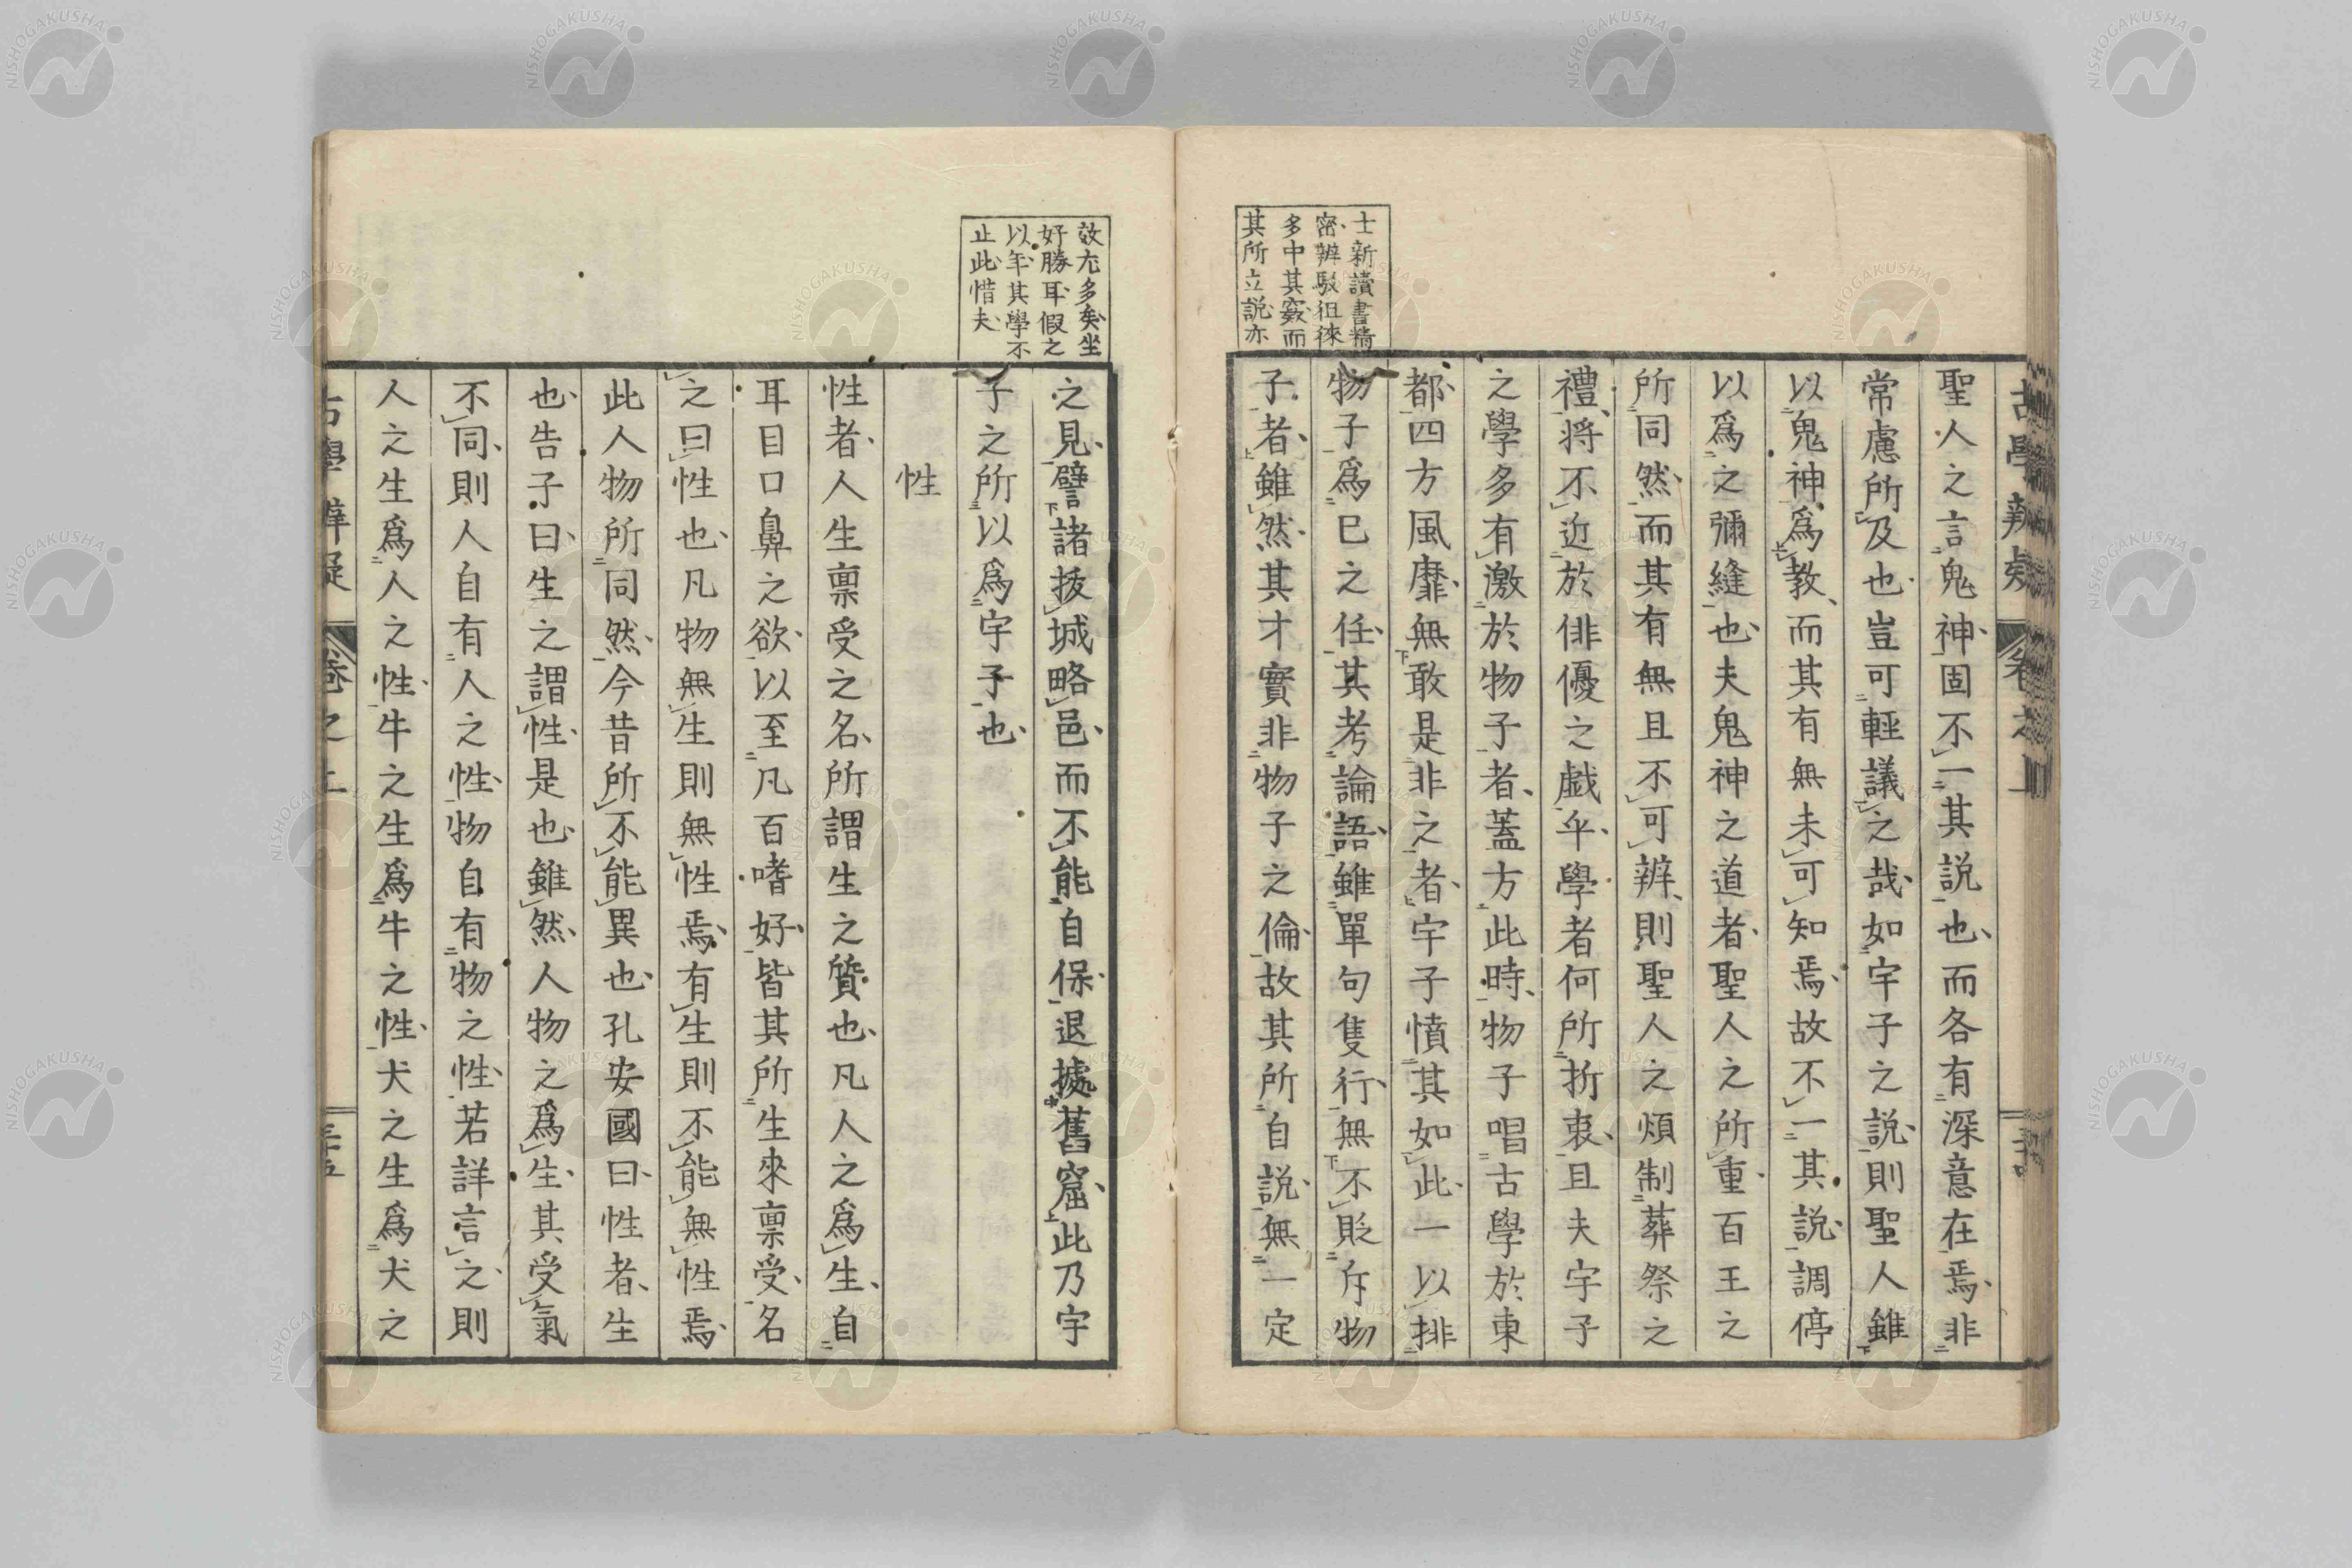 聖人之言鬼神固不一其説也而各有深意在焉非
常慮所及也豈可輕議之哉如宇子之説則聖人雖
以鬼神爲教而其有無未可知焉故不一其説調停
以爲之彌縫也夫鬼神之道者聖人之所重百王之
所同然而其有無且不可辨則聖人之煩制葬祭之
禮將不近於俳優之戯乎學者何所折衷且夫宇子
之學多有激於物子者蓋方此時物子唱古學於東
都四方風靡無敢是非之者宇子憤其如此一以排
物子爲己之任其考論語雖單句隻行無不貶斥物
子者雖然其才實非物子之倫故其所自説無一定
士新讀書精
密辨駁徂徠
多中其竅而
其所立説亦
之見譬諸抜城略邑而不能自保退據舊窟此乃宇
子之所以爲宇子也
性
性者人生禀受之名所謂生之質也凡人之爲生自
耳目口鼻之欲以至凡百嗜好皆其所生來禀受名
之曰性也凡物無生則無性焉有生則不能無性焉
此人物所同然今昔所不能異也孔安國曰性者生
也告子曰生之謂性是也雖然人物之爲生其受氣
不同則人自有人之性物自有物之性若詳言之則
人之生爲人之性牛之生爲牛之性犬之生爲犬之
效尤多矣坐
好勝耳假之
以年其學不
止此惜夫
古學辨疑 卷之上 三十五
NISHOGAKUSHA